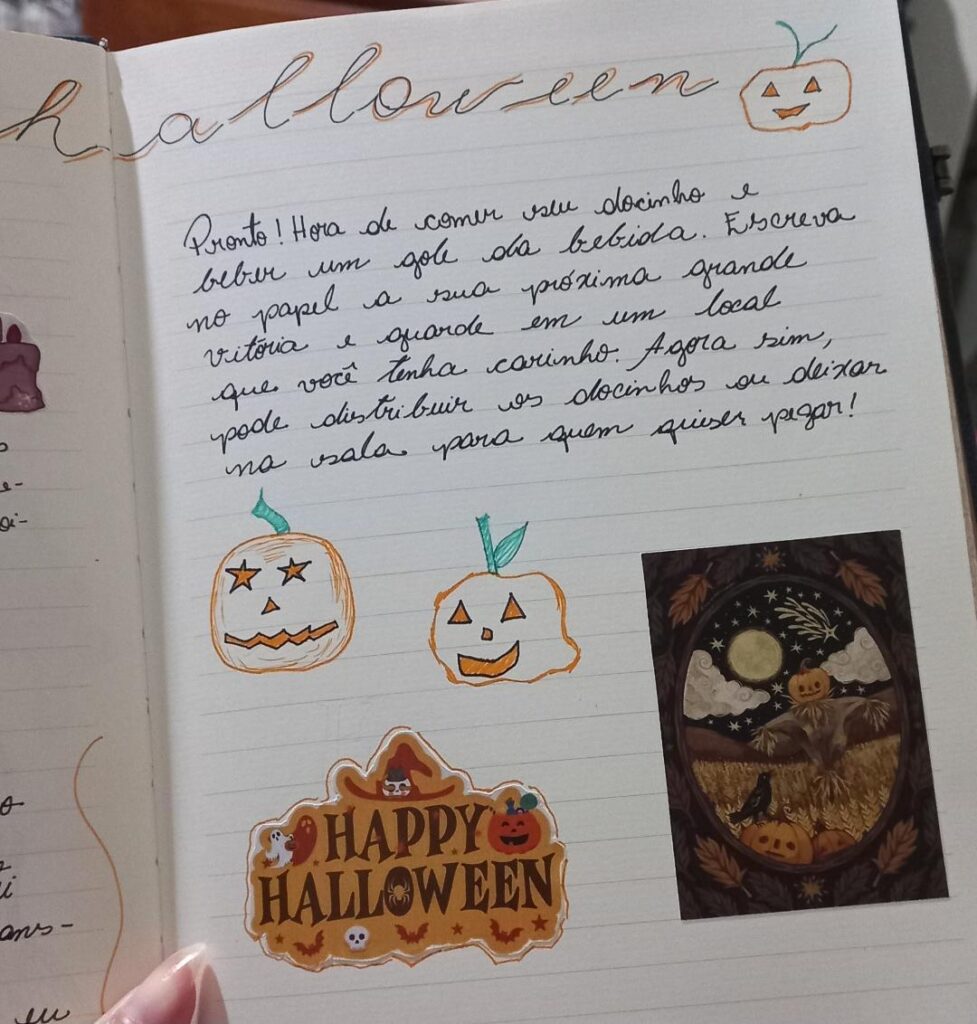 halloween
Pronto! Hora de comer seu docinho e
beber um gole da bebida. Escreva
no papel a sua próxima grande
vitória e guarde em um local
que você tenha carinho. Agora sim,
pode distribuir os docinhos ou deixar
na sala para quem quiser pegar!
HAPPY
HALLOWEEN